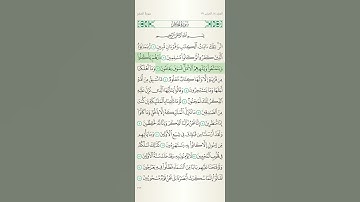 سُورَةُ الحِجْرِ
بِسْمِ ٱللَّهِ ٱلرَّحْمَٰنِ ٱلرَّحِيمِ
الٓر تِلْكَ ءَايَٰتُ ٱلْكِتَٰبِ وَقُرْءَانٍ مُّبِينٍ ١ رُّبَمَا يَوَدُّ
ٱلَّذِينَ كَفَرُوا۟ لَوْ كَانُوا۟ مُسْلِمِينَ ٢ ذَرْهُمْ يَأْكُلُوا۟
وَيَتَمَتَّعُوا۟ وَيُلْهِهِمُ ٱلْأَمَلُ فَسَوْفَ يَعْلَمُونَ ٣ وَمَآ أَهْلَكْنَا
مِن قَرْيَةٍ إِلَّا وَلَهَا كِتَابٌ مَّعْلُومٌ ٤ مَّا تَسْبِقُ مِنْ أُمَّةٍ
أَجَلَهَا وَمَا يَسْتَـْٔخِرُونَ ٥ وَقَالُوا۟ يَٰٓأَيُّهَا ٱلَّذِى نُزِّلَ عَلَيْهِ
ٱلذِّكْرُ إِنَّكَ لَمَجْنُونٌ ٦ لَّوْمَا تَأْتِينَا بِٱلْمَلَٰٓئِكَةِ إِن كُنتَ
مِنَ ٱلصَّٰدِقِينَ ٧ مَا نُنَزِّلُ ٱلْمَلَٰٓئِكَةَ إِلَّا بِٱلْحَقِّ وَمَا كَانُوٓا۟
إِذًا مُّنظَرِينَ ٨ إِنَّا نَحْنُ نَزَّلْنَا ٱلذِّكْرَ وَإِنَّا لَهُۥ لَحَٰفِظُونَ ٩
وَلَقَدْ أَرْسَلْنَا مِن قَبْلِكَ فِى شِيَعِ ٱلْأَوَّلِينَ ١٠ وَمَا يَأْتِيهِم
مِّن رَّسُولٍ إِلَّا كَانُوا۟ بِهِۦ يَسْتَهْزِءُونَ ١١ كَذَٰلِكَ نَسْلُكُهُۥ
فِى قُلُوبِ ٱلْمُجْرِمِينَ ١٢ لَا يُؤْمِنُونَ بِهِۦ وَقَدْ خَلَتْ سُنَّةُ ٱلْأَوَّلِينَ ١٣
وَلَوْ فَتَحْنَا عَلَيْهِم بَابًا مِّنَ ٱلسَّمَآءِ فَظَلُّوا۟ فِيهِ يَعْرُجُونَ ١٤
لَقَالُوٓا۟ إِنَّمَا سُكِّرَتْ أَبْصَٰرُنَا بَلْ نَحْنُ قَوْمٌ مَّسْحُورُونَ ١٥